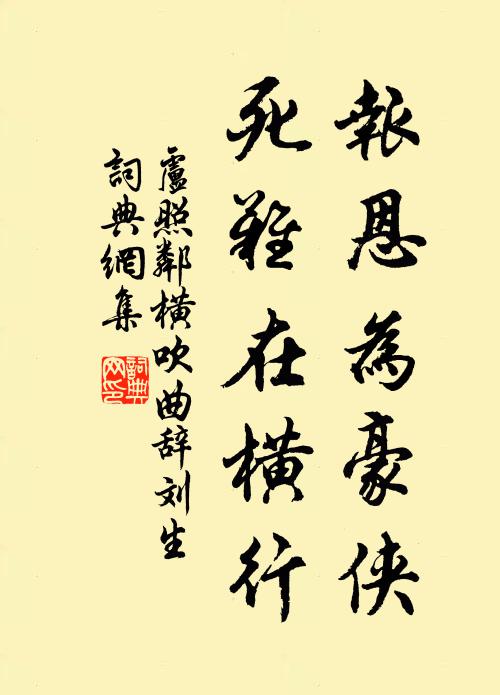 報恩為豪俠
死難在橫行
盧照鄰橫吹曲辞刘生
詞典網集
詞典网印